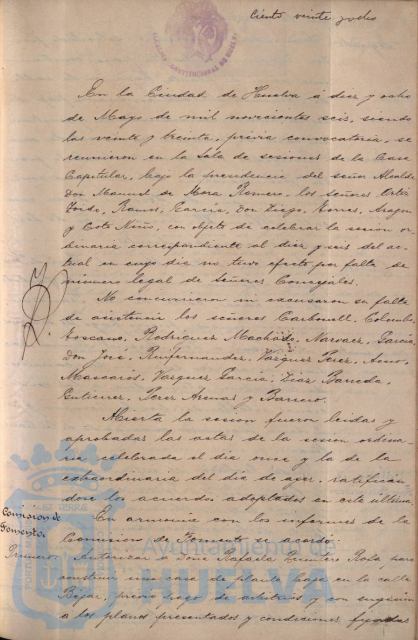 Ciento veinte y dos
En la Ciudad de Huelva á diez y ocho
de Mayo de mil novecientos seis, siendo
las veinte y treinta, previa convocatoria, se
reunieron en la Sala de sesiones de la Casa
Capitular, bajo la presidencia del señor Alcalde
Don Manuel de Mora Romero, los señores Ortiz
Ramos, García, Don Diego, Torres, Aragon
y Coto Niño, con objeto de celebrar la sesion or
dinaria correspondiente al diez y seis del ac
tual en cuyo dia no tuvo efecto por falta de
número legal de Señores Concejales.
No concurrieron ni excusaron su falta
de asistencia los señores Carbonell, Colombo,
Toscano, Rodriguez Machado, Narvaez, García
Don José, Vazquez Perez,
Mascarós, Vazquez García, Diaz Barreda,
Gutierrez, Perez Arenas y Barrero.
Abierta la sesion fueron leidas y
aprobadas las actas de la sesion ordina
ria celebrada el dia once y la de la
extraordinaria del dia de ayer, ratifican
dose los acuerdos adoptados en esta última.
Comision de
Fomento.
En armonia con los informes de la
Comision de Fomento se acordó:
Primero. Autorizar á Rafaela para
construir una casa de planta baja en la calle
Bejar, previo pago de arbitrios y con sugecion
a los planos presentados y condiciones fijadas
Ayuntamiento de
HUELVA